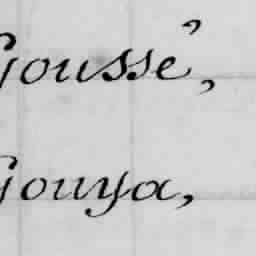 Gousse,
Gouya,